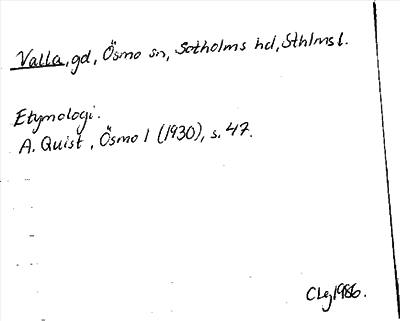 Valla, gd, Ösmo sn, Sotholms hd, Sthlms l.
Etymologi.
A. Quist, Ösmo 1 (1930), s. 47.
CLg 1986.